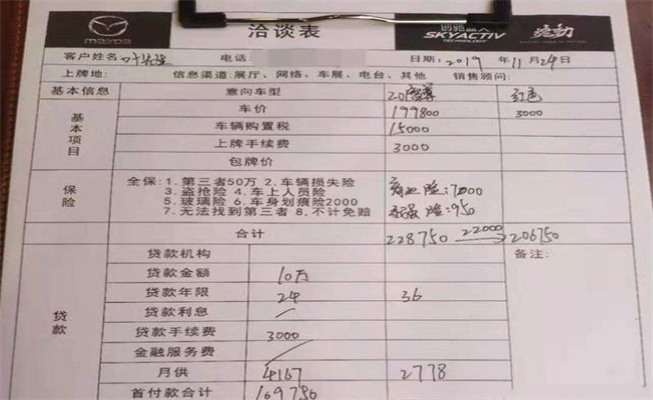 mazda
洽谈表
创驰蓝天
SKYACTIV
TECHNOLOGY
客户姓名: 电话: 日期: 2019年11月24日
上牌地: 信息渠道:展厅、网络、车展、电台、其他 销售顾问:
基本信息 意向车型 红色
基本项目
车价 199800 3000
车辆购置税 15000
上牌手续费 3000
包牌价
保险
全保:1.第三者50万 2.车辆损失险 商业险:7000
3.盗抢险 4.车上人员险
5.玻璃险 6.车身划痕险2000 交强险:950
7.无法找到第三者 8.不计免赔
合计 228750 22000 206750
贷款
贷款机构 备注:
贷款金额 10万
贷款年限 24 36
贷款利息
贷款手续费 3000
金融服务费
月供 4167 2778
首付款合计 109750